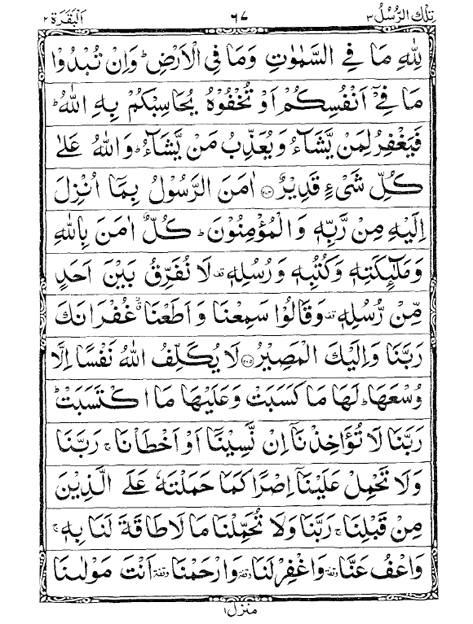 تِلْكَ الرُّسُلُ ٣ ٦٧ اَلْبَقَرَة ٢
لِلّٰهِ مَا فِي السَّمٰوٰتِ وَمَا فِي الْاَرْضِ ؕ وَاِنْ تُبْدُوْا
مَا فِيْۤ اَنْفُسِكُمْ اَوْ تُخْفُوْهُ يُحَاسِبْكُمْ بِهِ اللّٰهُ ؕ
فَيَغْفِرُ لِمَنْ يَّشَآءُ وَيُعَذِّبُ مَنْ يَّشَآءُ ؕ وَاللّٰهُ عَلٰى
كُلِّ شَيْءٍ قَدِيْرٌ ۝ اٰمَنَ الرَّسُوْلُ بِمَاۤ اُنْزِلَ
اِلَيْهِ مِنْ رَّبِّهٖ وَالْمُؤْمِنُوْنَ ؕ كُلٌّ اٰمَنَ بِاللّٰهِ
وَمَلٰٓئِكَتِهٖ وَكُتُبِهٖ وَرُسُلِهٖ لَا نُفَرِّقُ بَيْنَ اَحَدٍ
مِّنْ رُّسُلِهٖ وَقَالُوْا سَمِعْنَا وَاَطَعْنَا غُفْرَانَكَ
رَبَّنَا وَاِلَيْكَ الْمَصِيْرُ ۝ لَا يُكَلِّفُ اللّٰهُ نَفْسًا اِلَّا
وُسْعَهَا ؕ لَهَا مَا كَسَبَتْ وَعَلَيْهَا مَا اكْتَسَبَتْ ؕ
رَبَّنَا لَا تُؤَاخِذْنَاۤ اِنْ نَّسِيْنَاۤ اَوْ اَخْطَاْنَا ۚ رَبَّنَا
وَلَا تَحْمِلْ عَلَيْنَاۤ اِصْرًا كَمَا حَمَلْتَهٗ عَلَى الَّذِيْنَ
مِنْ قَبْلِنَا ۚ رَبَّنَا وَلَا تُحَمِّلْنَا مَا لَا طَاقَةَ لَنَا بِهٖ ۚ
وَاعْفُ عَنَّا وقفة وَاغْفِرْ لَنَا وقفة وَارْحَمْنَا وقفة اَنْتَ مَوْلٰىنَا
منزل ١